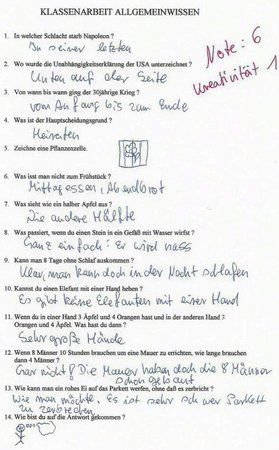 KLASSENARBEIT ALLGEMEINWISSEN
Note: 6
Kreativität 1
1. In welcher Schlacht starb Napoleon ?
In seiner letzten
2. Wo wurde die Unabhängigkeitserklärung der USA unterzeichnet ?
Unten auf der Seite
3. Von wann bis wann ging der 30jährige Krieg ?
vom Anfang bis zum Ende
4. Was ist der Hauptscheidungsgrund ?
Heiraten
5. Zeichne eine Pflanzenzelle.
6. Was isst man nicht zum Frühstück ?
Mittagessen, Abendbrot
7. Was sieht wie ein halber Apfel aus ?
Die andere Hälfte
8. Was passiert, wenn du einen Stein in ein Gefäß mit Wasser wirfst ?
Ganz einfach: Er wird nass
9. Kann man 8 Tage ohne Schlaf auskommen ?
Klar, man kann doch in der Nacht schlafen
10. Kannst du einen Elefant mit einer Hand heben ?
Es gibt keine Elefanten mit einer Hand
11. Wenn du in einer Hand 3 Äpfel und 4 Orangen hast und in der anderen Hand 3
Orangen und 4 Äpfel. Was hast du dann ?
Sehr große Hände
12. Wenn 8 Männer 10 Stunden brauchen um eine Mauer zu errichten, wie lange brauchen
dann 4 Männer ?
Gar nicht! Die Mauer haben doch die 8 Männer
schon gebaut
13. Wie kann man ein rohes Ei auf das Parkett werfen, ohne daß es zerbricht ?
Wie man möchte. Es ist sehr schwer Parkett
zu zerbrechen
14. Wie bist du auf die Antwort gekommen ?